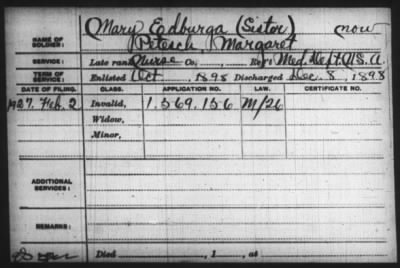 NAME OF SOLDIER: Mary Edburga (Sister) now
Petesch Margaret
SERVICE: Late rank Nurse Co., Reg't Med. Dept. U.S.A.
TERM OF SERVICE: Enlisted Oct , 1898 Discharged Dec. 8, 1898
DATE OF FILING. CLASS. APPLICATION NO. LAW. CERTIFICATE NO.
1927. Feb. 2 Invalid, 1.569.156 M/26
Widow,
Minor,
ADDITIONAL SERVICES:
REMARKS:
Died , 1 , at